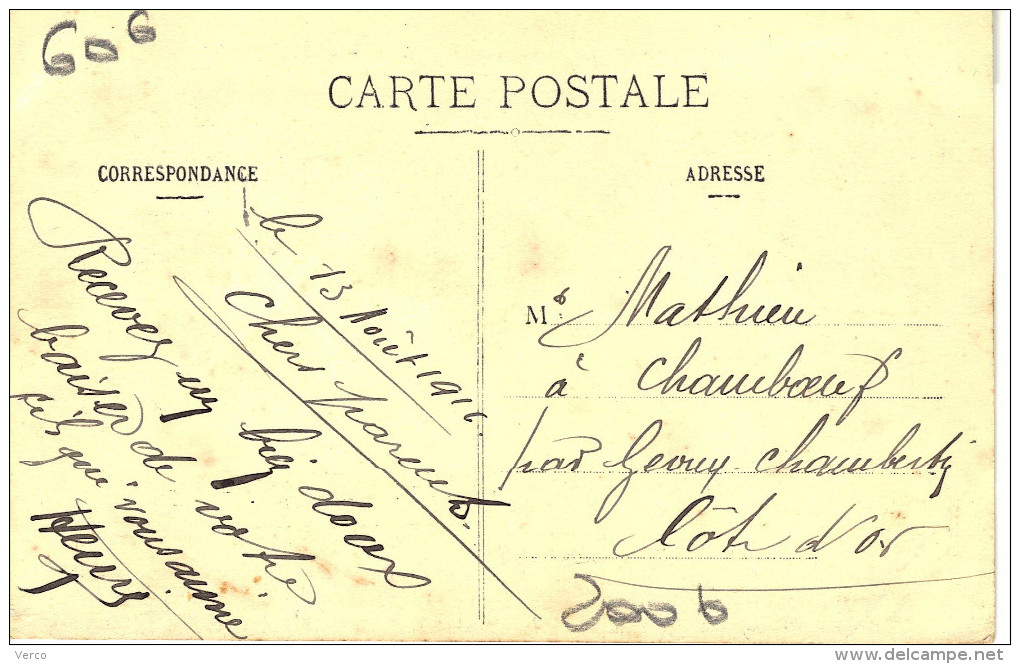 60 6
CARTE POSTALE
CORRESPONDANCE
le 13 Août 1916.
Chers parents.
Recevez un bien doux
baiser de votre
fils qui vous aime
Henri
ADRESSE
Mr Mathieu
à Chambœuf
par Gevrey-Chambertin
Côte d'Or
200 b
Verco
delcampe.net